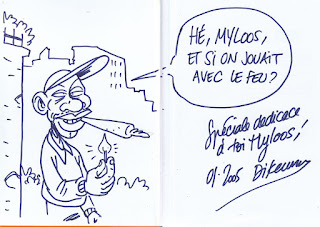 HÉ, MYLOOS,
ET SI ON JOUAIT
AVEC LE FEU?
Spéciale dédicace
à toi Myloos,
01.2005